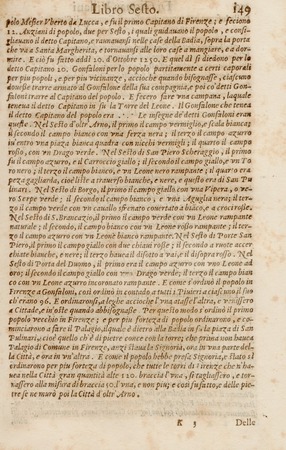 Libro Sesto. 149
polo Messer Vberto da Lucca, e fu il primo Capitano di Firenze; e feciono
12. Anziani di popolo, due per Sesto, i quali guidauano il popolo, e consi-
gliauano il detto Capitano, e raunauansi nelle case della Badia, sopra la porta
che va a Santa Margherita, e tornauansi alle loro case a mangiare, e a dor-
mire. E ciò fu fatto addì 20. d'Ottobre 1250. E quel dì si diedono per lo
detto Capitano 20. Gonfaloni per lo popolo partitamente a certi caporali
per piu popoli, e per piu vicinanze, acciochè quando bisognasse, ciascuno
douesse trarre armato al Gonfalone della sua compagnia, e poi co detti Gon-
faloni al detto Capitano del popolo. E fecero fare vna campana, laquale
teneua il detto Capitano in su la Torre del Leone. Il Gonfalone che teneua
il detto Capitano del popolo era Le insegne de' detti Gonfaloni eran
queste. Nel Sesto d'oltr' Arno, il primo il campo vermiglio, e scala bianca;
il secondo il campo bianco con vna ferza nera; il terzo il campo azurro
iui entro vna piazza bianca quadra con nicchi vermigli; il quarto il campo
rosso, con vn Drago verde. Nel Sesto di San Piero Scheraggio il primo fu
il campo azurro, e il Carroccio giallo; il secondo il campo giallo, e vn To
ro nero; il terzo il campo bianco, e vn Leone nero rampante; il quarto era
pezza gagliarda, cioè liste a trauerso bianche, e nere, e questo era di San Pu
linari. Nel Sesto di Borgo, il primo il campo giallo con vna Vipera, o ve-
ro Serpe verde; il secondo il campo bianco, e vna Aguglia nera; il ter-
zo il campo verde con vn cauallo sfrenato couertato a bianco, e croce rossa.
Nel Sesto di S. Brancazio, il primo il campo verde con vn Leone rampante
naturale; il secondo, il campo bianco con vn Leone rosso rampante; il ter-
zo il campo azurro, con vn Leone bianco rampante. Nel Sesto de Porte San
Piero, il primo il campo giallo con due chiaui rosse; il secondo a ruote accer
chiate bianche, e nere; il terzo bianca di sotto a vai, e il di sopra rosso. Nel
Sesto di Porta del Duomo, il primo era il campo azurro con vn Leone ad
oro; il secondo il campo giallo con vno Drago verde; il terzo il campo bian
co con vn Leone azurro incoronato rampante. E come s'ordinò il popolo in
Firenze a Gonfaloni, così ordinò in contado a tutti i Piuieri ciascuno il suo
ch' erano 96. E ordinaronsi, a leghe acciochè l'una atasse l'altra, e venissero
a Cittade, e in hoste quando abbisognasse. Per questo modo s'ordinò il primo
popolo vecchio in Firenze; e per piu fortezza di popolo ordinarono, e co-
minciarono a fare il Palagio, il quale è dietro alla Badia in su la piazza di San
Pulinari, cioè quello ch'è di pietre conce con la torre; che prima non hauea
Palagio di Comune in Firenze, anzi staua le Signoria, ora in vna parte del-
la Città, e ora in vn'altra. E come il popolo hebbe presa Signoria, e stato sì
ordinarono per piu fortezza di popolo, che tutte le torri di Firenze che n' ha
uea nella Città gran quantità alte 120. braccia l'vna, si tagliassero, e tor-
nassero alla misura di braccia 50. l'vna, e non piu; e così fu fatto, e delle pie-
tre se ne murò poi la Città d'oltr' Arno.
K 3 Delle